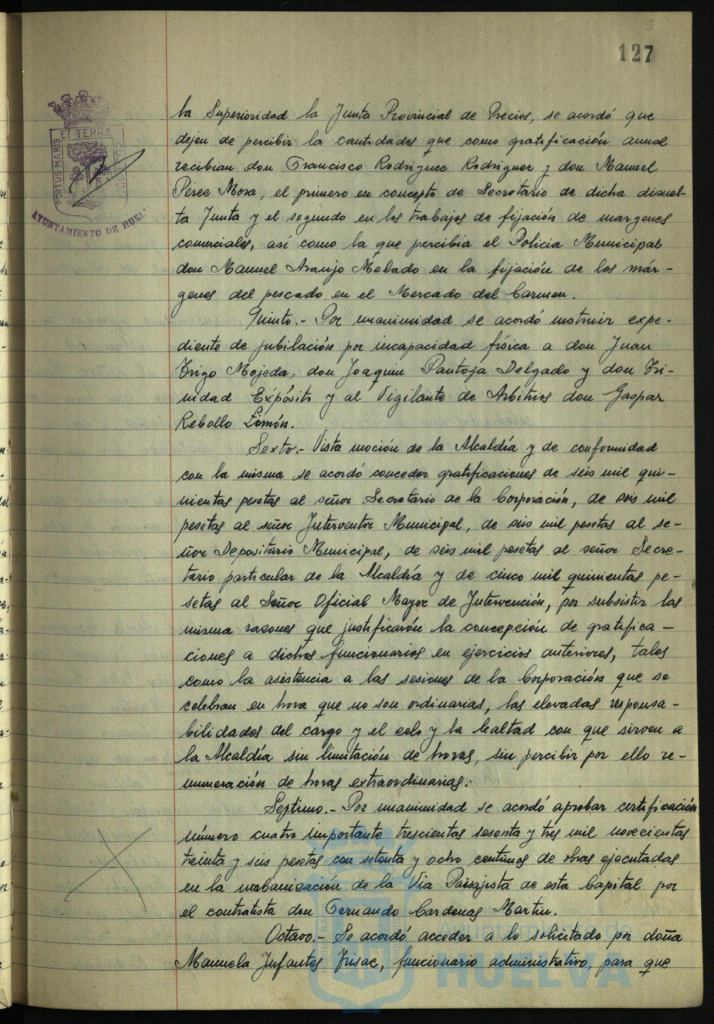 127
PORTUS MARIS
ET TERRAE
AYUNTAMIENTO DE HUEL
la Superioridad la Junta Provincial de Precios, se acordó que
dejen de percibir la cantidades que como gratificación anual
recibian don Francisco Rodríguez Rodríguez y don Manuel
Perez Mora, el primero en concepto de Secretario de dicha disuel-
ta Junta y el segundo en los trabajos de fijación de margenes
comerciales, así como la que percibia el Policia Municipal
don Manuel Araujo Melado en la fijación de los már-
genes del pescado en el Mercado del Carmen.
Quinto.- Por unanimidad se acordó instruir expe-
diente de jubilación por incapacidad física a don Juan
Trigo Mojeda, don Joaquin Pantoja Delgado y don Tri-
nidad Expósito y al Vigilante de Arbitrios don Gaspar
Rebollo Limón.
Sexto.- Vista moción de la Alcaldía y de conformidad
con la misma se acordó conceder gratificaciones de seis mil qui-
nientas pesetas al señor Secretario de la Corporación, de seis mil
pesetas al señor Interventor Municipal, de seis mil pesetas al se-
ñor Depositario Municipal, de seis mil pesetas al señor Secre-
tario particular de la Alcaldía y de cinco mil quinientas pe-
setas al Señor Oficial Mayor de Intervención, por subsistir las
misma razones que justificarón la concepción de gratifica-
ciones a dichos funcionarios en ejercicios anteriores, tales
como la asistencia a las sesiones de la Corporación que se
celebran en hora que no son ordinarias, las elevadas responsa-
bilidades del cargo y el celo y la lealtad con que sirven a
la Alcaldía sin limitación de horas, sin percibir por ello re-
muneración de horas extraordinarias.
Septimo.- Por unanimidad se acordó aprobar certificación
número cuatro importante trescientas sesenta y tres mil novecientas
treinta y seis pesetas con setenta y ocho centimos de obras ejecutadas
en la urbanización de la Via Paisajista de esta Capital por
el contratista don Fernando Cardenas Martin.
Octavo.- Se acordó acceder a lo solicitado por doña
Manuela Infantes Frisac, funcionario administrativo, para que
HUELVA